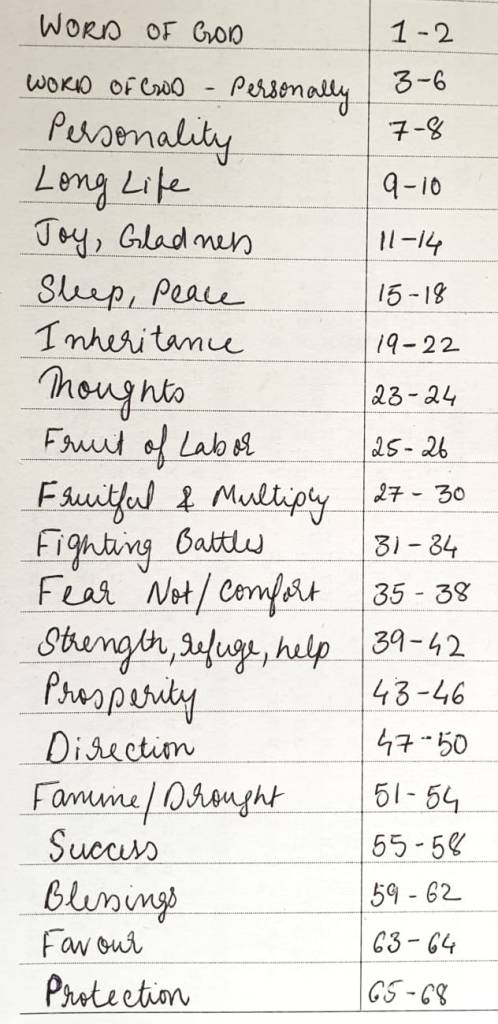 WORD OF GOD 1-2
WORD OF GOD - Personally 3-6
Personality 7-8
Long Life 9-10
Joy, Gladness 11-14
Sleep, Peace 15-18
Inheritance 19-22
Thoughts 23-24
Fruit of Labor 25-26
Fruitful & Multiply 27-30
Fighting Battles 31-34
Fear Not/Comfort 35-38
Strength, refuge, help 39-42
Prosperity 43-46
Direction 47-50
Famine/Drought 51-54
Success 55-58
Blessings 59-62
Favour 63-64
Protection 65-68